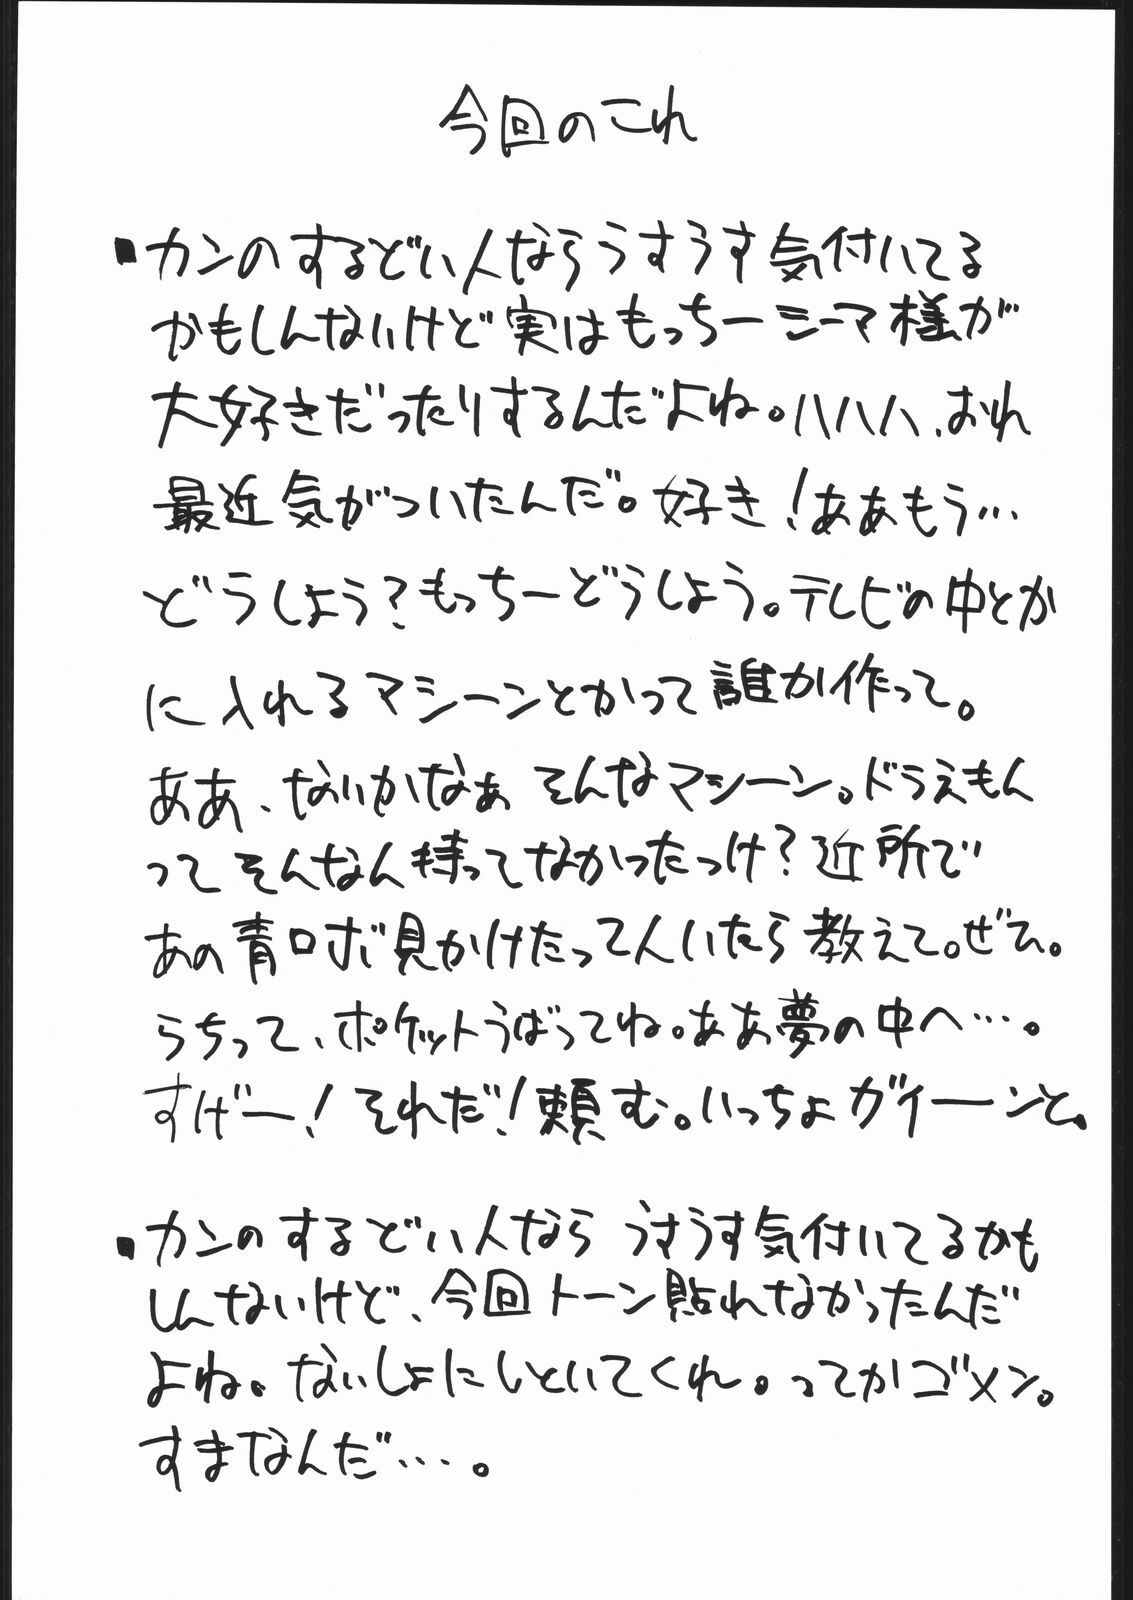 今回のこれ
■カンのするどい人ならうすうす気付いてる
かもしんないけど実はもっちーシーマ様が
大好きだったりするんだよね。ハハハ、おれ
最近気がついたんだ。好き！ああもう…
どうしよう？もっちーどうしよう。テレビの中とか
に入れるマシーンとかって誰か作って。
ああ、ないかなぁ そんなマシーン。ドラえもん
ってそんなん持ってなかったっけ？近所で
あの青ロボ見かけたって人いたら教えて。ぜひ。
らちって、ポケットうばってね。ああ夢の中へ…。
すげー！それだ！頼む。いっちょガイーンと。
■カンのするどい人なら うすうす気付いてるかも
しんないけど、今回トーン貼れなかったんだ
よね。ないしょにしといてくれ。ってかゴメン。
すまなんだ…。